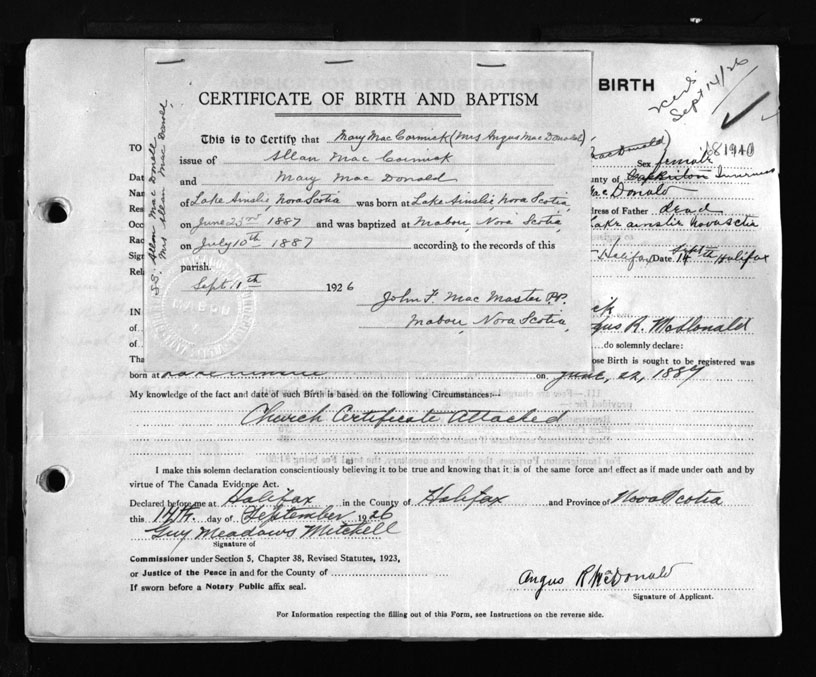 BIRTH
Recd.
Sept 14/26
CERTIFICATE OF BIRTH AND BAPTISM
This is to Certify that Mary Mac Cormick (Mrs Angus Mac Donald)
issue of Allan Mac Cormick
and Mary Mac Donald
of Lake Ainslie Nova Scotia was born at Lake Ainslie Nova Scotia,
on June 23rd 1887 and was baptized at Mabou, Nova Scotia,
on July 10th 1887 according to the records of this
parish.
Sept. 11th 1926
John F. Mac Master P.P.
Mabou, Nova Scotia,
MABOU
SS: Allan Mac Donell,
Mrs Allan Mac Donell,
TO
Dat
Nam
Res
Occ
Rac
Sig
Rel
IN
of
of
Tha
MacDonald)
81940
Sex female
County of Inverness
MacDonald
dress of Father dead
Lake ainslie Nova Scotia
Halifax Date 14 Halifax
ick
gus R. McDonald
do solemnly declare:
ose Birth is sought to be registered was
born at on June, 22, 1887
My knowledge of the fact and date of such Birth is based on the following Circumstances:—
Church Certificate Attached
I make this solemn declaration conscientiously believing it to be true and knowing that it is of the same force and effect as if made under oath and by
virtue of The Canada Evidence Act.
Declared before me at Halifax in the County of Halifax and Province of Nova Scotia
this 14th. day of September 1926
Guy Meadows Mitchell
Signature of
Commissioner under Section 5, Chapter 38, Revised Statutes, 1923,
or Justice of the Peace in and for the County of
If sworn before a Notary Public affix seal.
Angus R McDonald
Signature of Applicant.
For Information respecting the filling out of this Form, see Instructions on the reverse side.